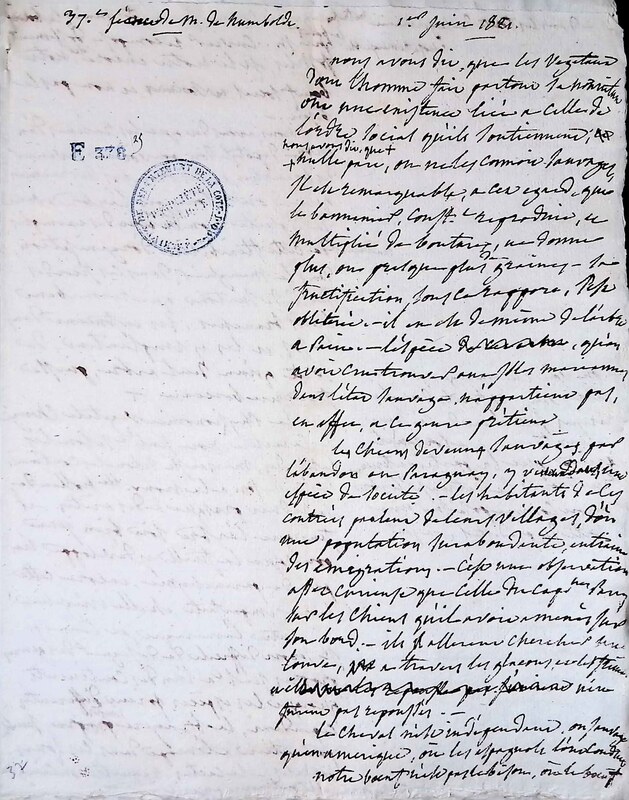 37.e séance de M. de humbolde.
1.er Juin 1821.
nous avons dit, que les vegetaux
dont l'homme fait partout sa nourriture
ont une existence liée a celle de
l'ordre social qu'ils soutiennent,
nous avons dit, que
nulle part, on ne les connoit sauvages
Il est remarquable, a cet egard, que
le bananier, const.t reproduit, et
multiplié de boutures, ne donne
plus, ou presque plus de graines - la
fructification, sous ce rapport, s'est
oblitérée. - il en est de même de l'arbre
a Pain. - l'espèce, qu'on
avoit cru trouver aux Isles mariannes
dans l'état sauvage, n'appartient pas,
en effet, a ce genre précieux
les chiens devenus sauvages par
l'abandon au Paraguay, y
espèce de societé. - les habitants de ces
contrées parlent de leurs villages, d'où
une population surabondante, entraine
des émigrations. - c'est une observation
assez curieuse que celle du Cap.ne Parry
sur les chiens qu'il avoit amenés sur
son bord. - ils allerent chercher une
louve, a travers les glaçons,
furent pas repoussés -
le cheval n'est indépendant, ou sauvage
qu'en amerique, où les espagnols l'ont conduit
notre boeuf n'est pas le bison,
E 378
25
ARCHIVES DU DEPARTEMENT DE LA COTE-D'OR